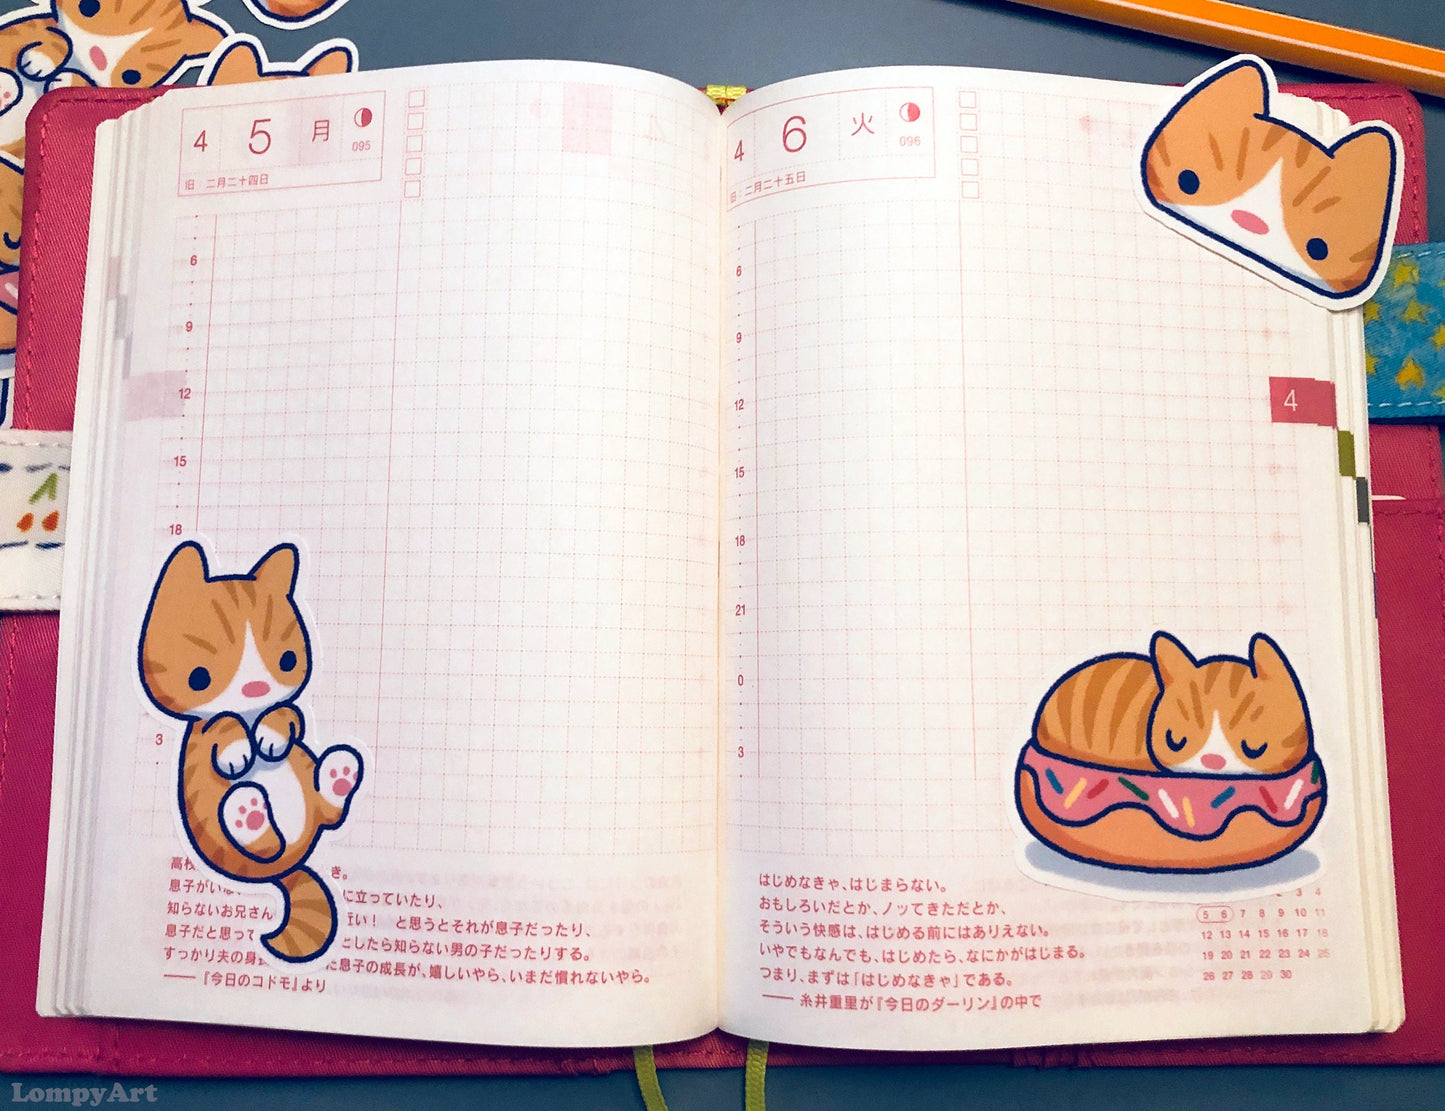 4 5 月
095
旧 二月二十四日
6
9
12
15
18
3
高校 き。
息子がいな、 に立っていたり、
知らないお兄さん 近い! と思うとそれが息子だったり、
息子だと思って としたら知らない男の子だったりする。
すっかり夫の身長 た息子の成長が、嬉しいやら、いまだ慣れないやら。
──『今日のコドモ』より
4 6 火
096
旧 二月二十五日
6
9
12
15
18
21
0
3
4
はじめなきゃ、はじまらない。
おもしろいだとか、ノッてきただとか、
そういう快感は、はじめる前にはありえない。
いやでもなんでも、はじめたら、なにかがはじまる。
つまり、まずは「はじめなきゃ」である。
── 糸井重里が『今日のダーリン』の中で
2 3 4
5 6 7 8 9 10 11
12 13 14 15 16 17 18
19 20 21 22 23 24 25
26 27 28 29 30
LompyArt